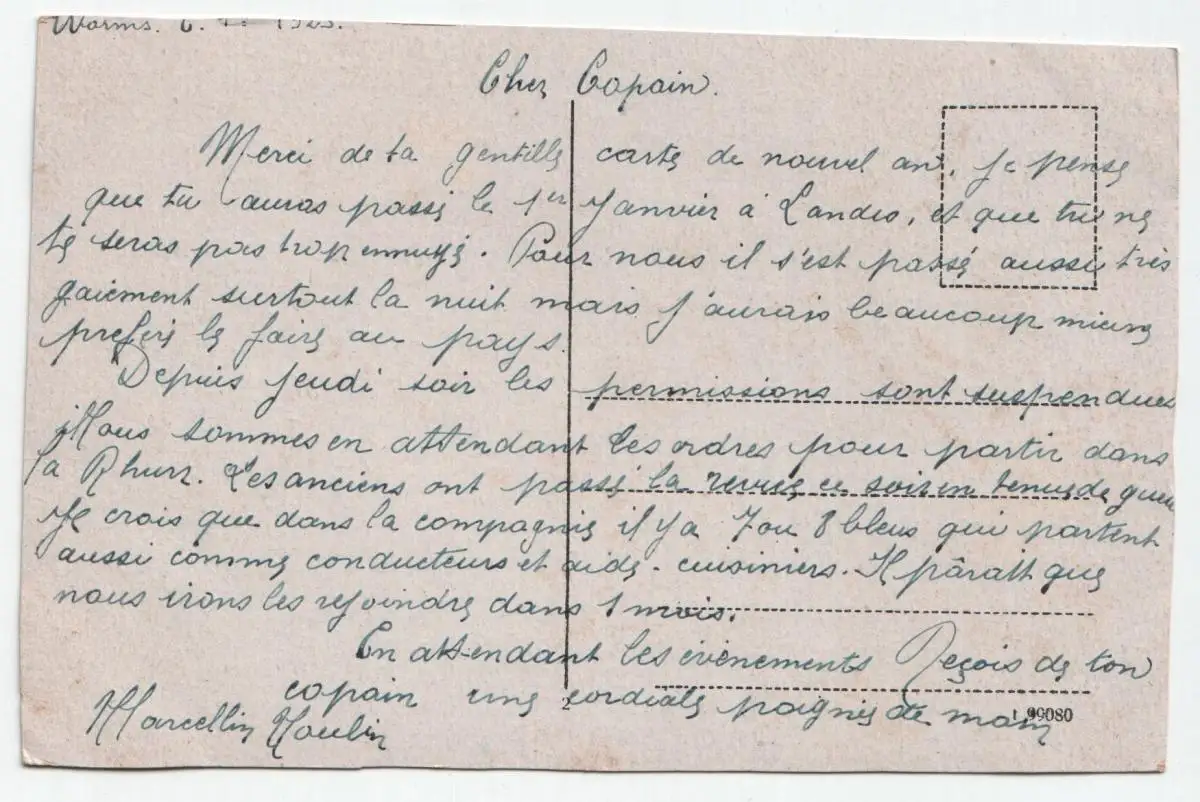 Worms. 6. 1923.
Cher Copain.
Merci de ta gentille carte de nouvel an, je pense
que tu auras passé le 1er Janvier à Landeo, et que tu ne
te seras pas trop ennuyé. Pour nous il s'est passé aussi très
gaiement surtout la nuit mais j'aurais beaucoup mieux
préféré le faire au pays.
Depuis jeudi soir les permissions sont suspendues
Nous sommes en attendant les ordres pour partir dans
la Rhurr. Les anciens ont passé la revue ce soir en tenue de guer
Je crois que dans la compagnie il y a 7 ou 8 bleus qui partent
aussi comme conducteurs et aide-cuisiniers. Il pârait que
nous irons les rejoindre dans 1 mois.
En attendant les évènements Reçois de ton
copain une cordiale poignée de main
Marcellin
2
99080